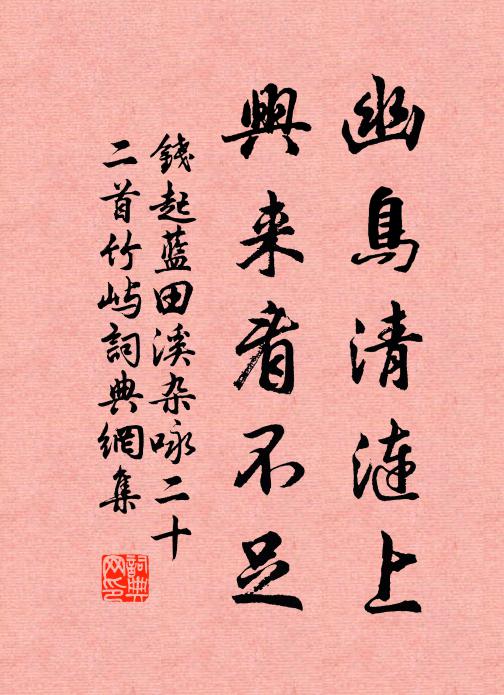 幽鳥清漣上
興来看不足
錢起藍田溪杂咏二十
二首竹嶼詞典網集
詞典
网印